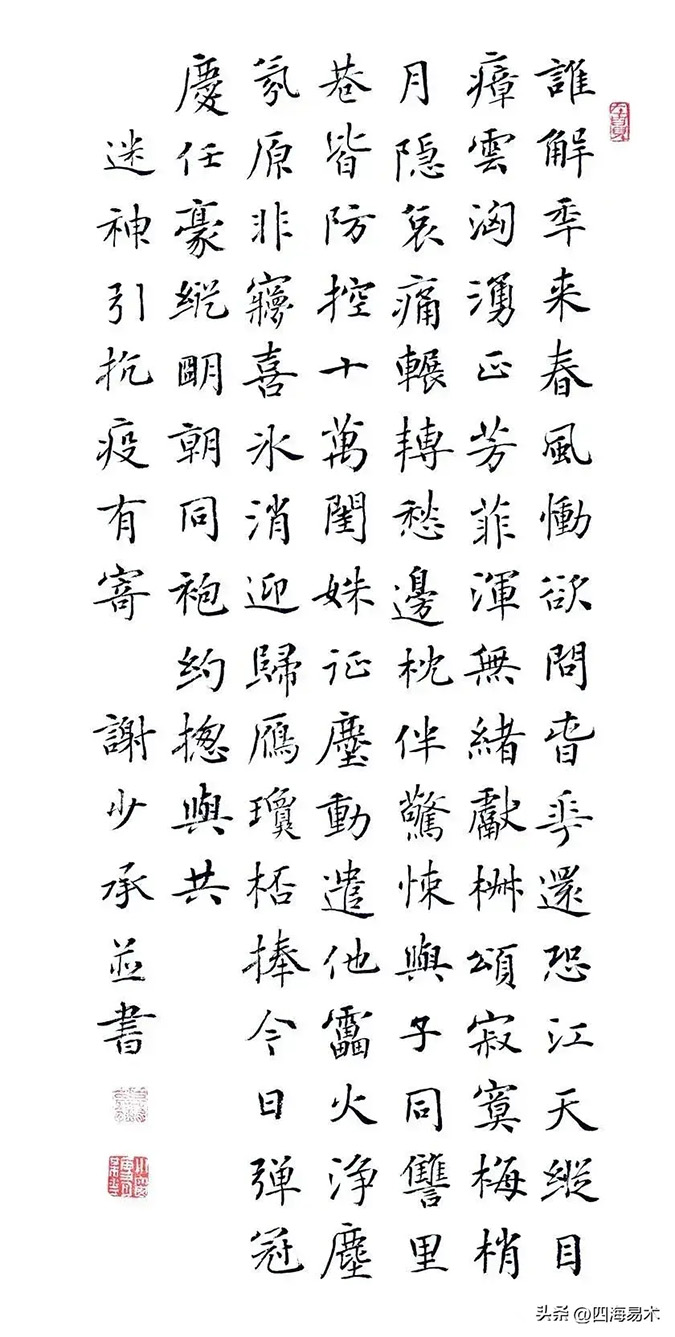 誰解秊来春風慟欲問旾華還恐江天縱目
瘴雲洶湧正芳菲渾無緒獻椒頌寂寞梅梢
月隱哀痛輾轉愁邊枕伴驚悚與子同讐里
巷皆防控十萬閨姝征塵動遣他靁火淨塵
氛原非㝱喜冰消迎歸雁瓊桮捧今日弹冠
慶任豪縱朙朝同袍約揔與共
迷神引抗疫有寄 謝少承並書
头条 @四海易木